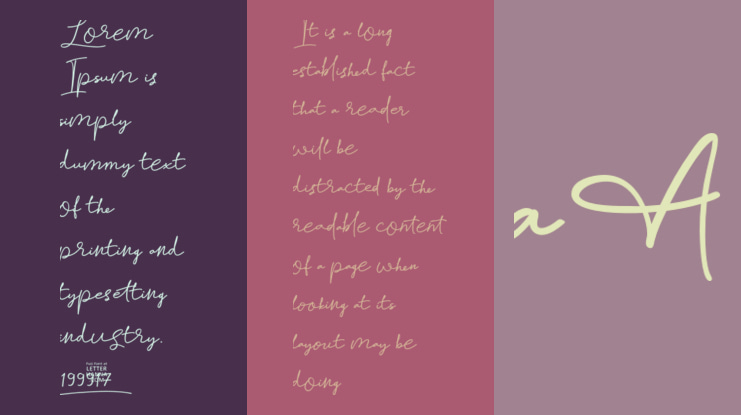 Lorem
Ipsum is
simply
dummy text
of the
printing and
typesetting
industry.
LETTER
It is a long
established fact
that a reader
will be
distracted by the
readable content
of a page when
looking at its
layout may be
doing
a A